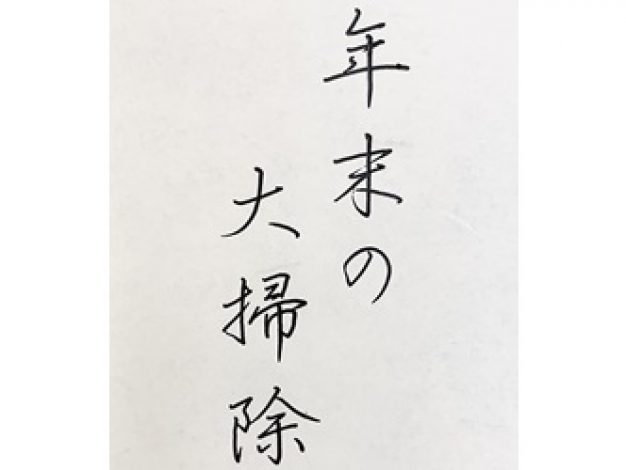 年末の
大掃除